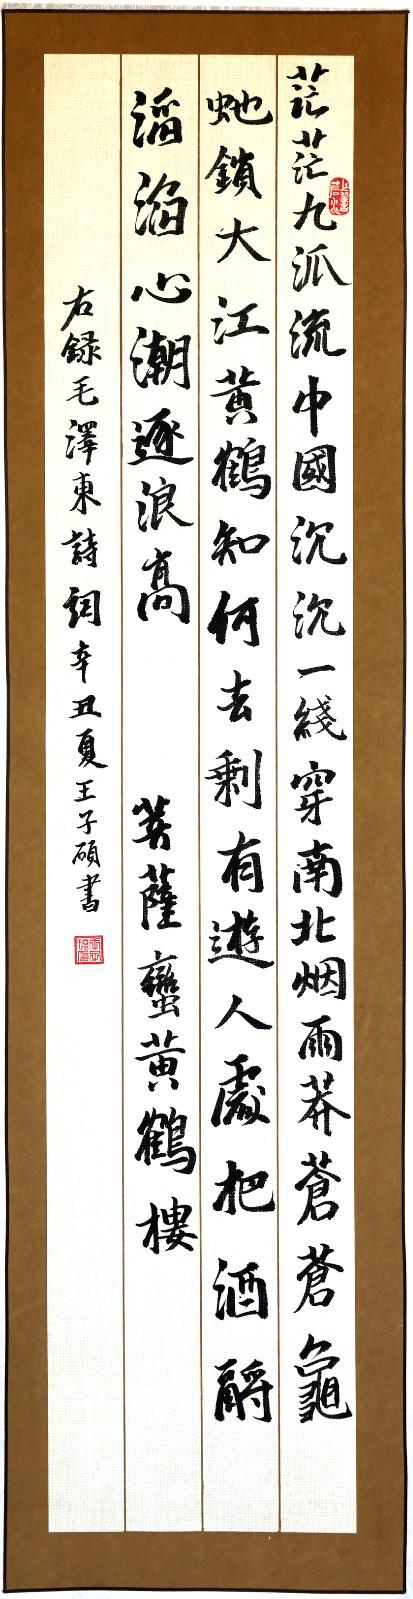 茫茫九派流中國沉沉一綫穿南北烟雨莽蒼蒼龜
虵鎖大江黄鶴知何去剩有遊人處把酒酹
滔滔心潮逐浪高 菩薩蠻黄鶴樓
右録毛澤東詩詞辛丑夏王子碩書